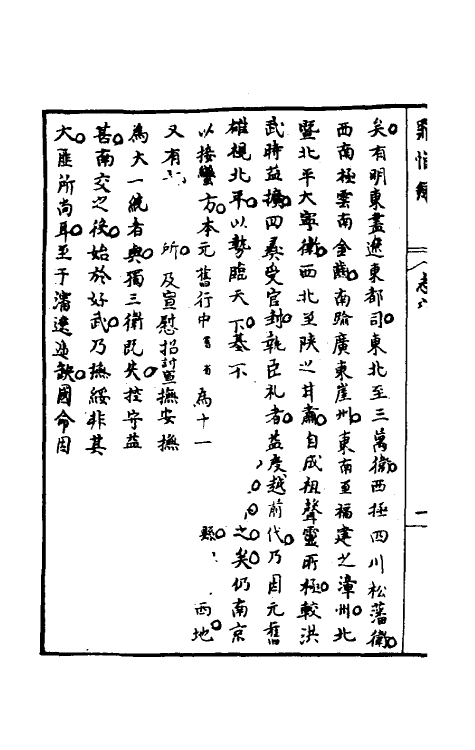 罪惟錄 卷之
一
矣有明東盡遼東都司東北至三萬衛西極四川松藩衛
西南極雲南金齒南踰廣東崖州東南至福建之漳州北
暨北平大寧衛西北至陝之甘肅自成祖聲靈所極較洪
武時益擴四彝受官封執臣礼者益度越前代乃因元舊
雄視北平以勢臨天下基不 之矣仍南京
以接蠻方本元舊行中書省為十一 縣 西地
又有 所及宣慰招討宣撫安撫
為大一統者與獨三衛既失控守益
甚南交之後始於好武乃撫綏非其
大匪所尚耳至于瀋遼造缺國命因